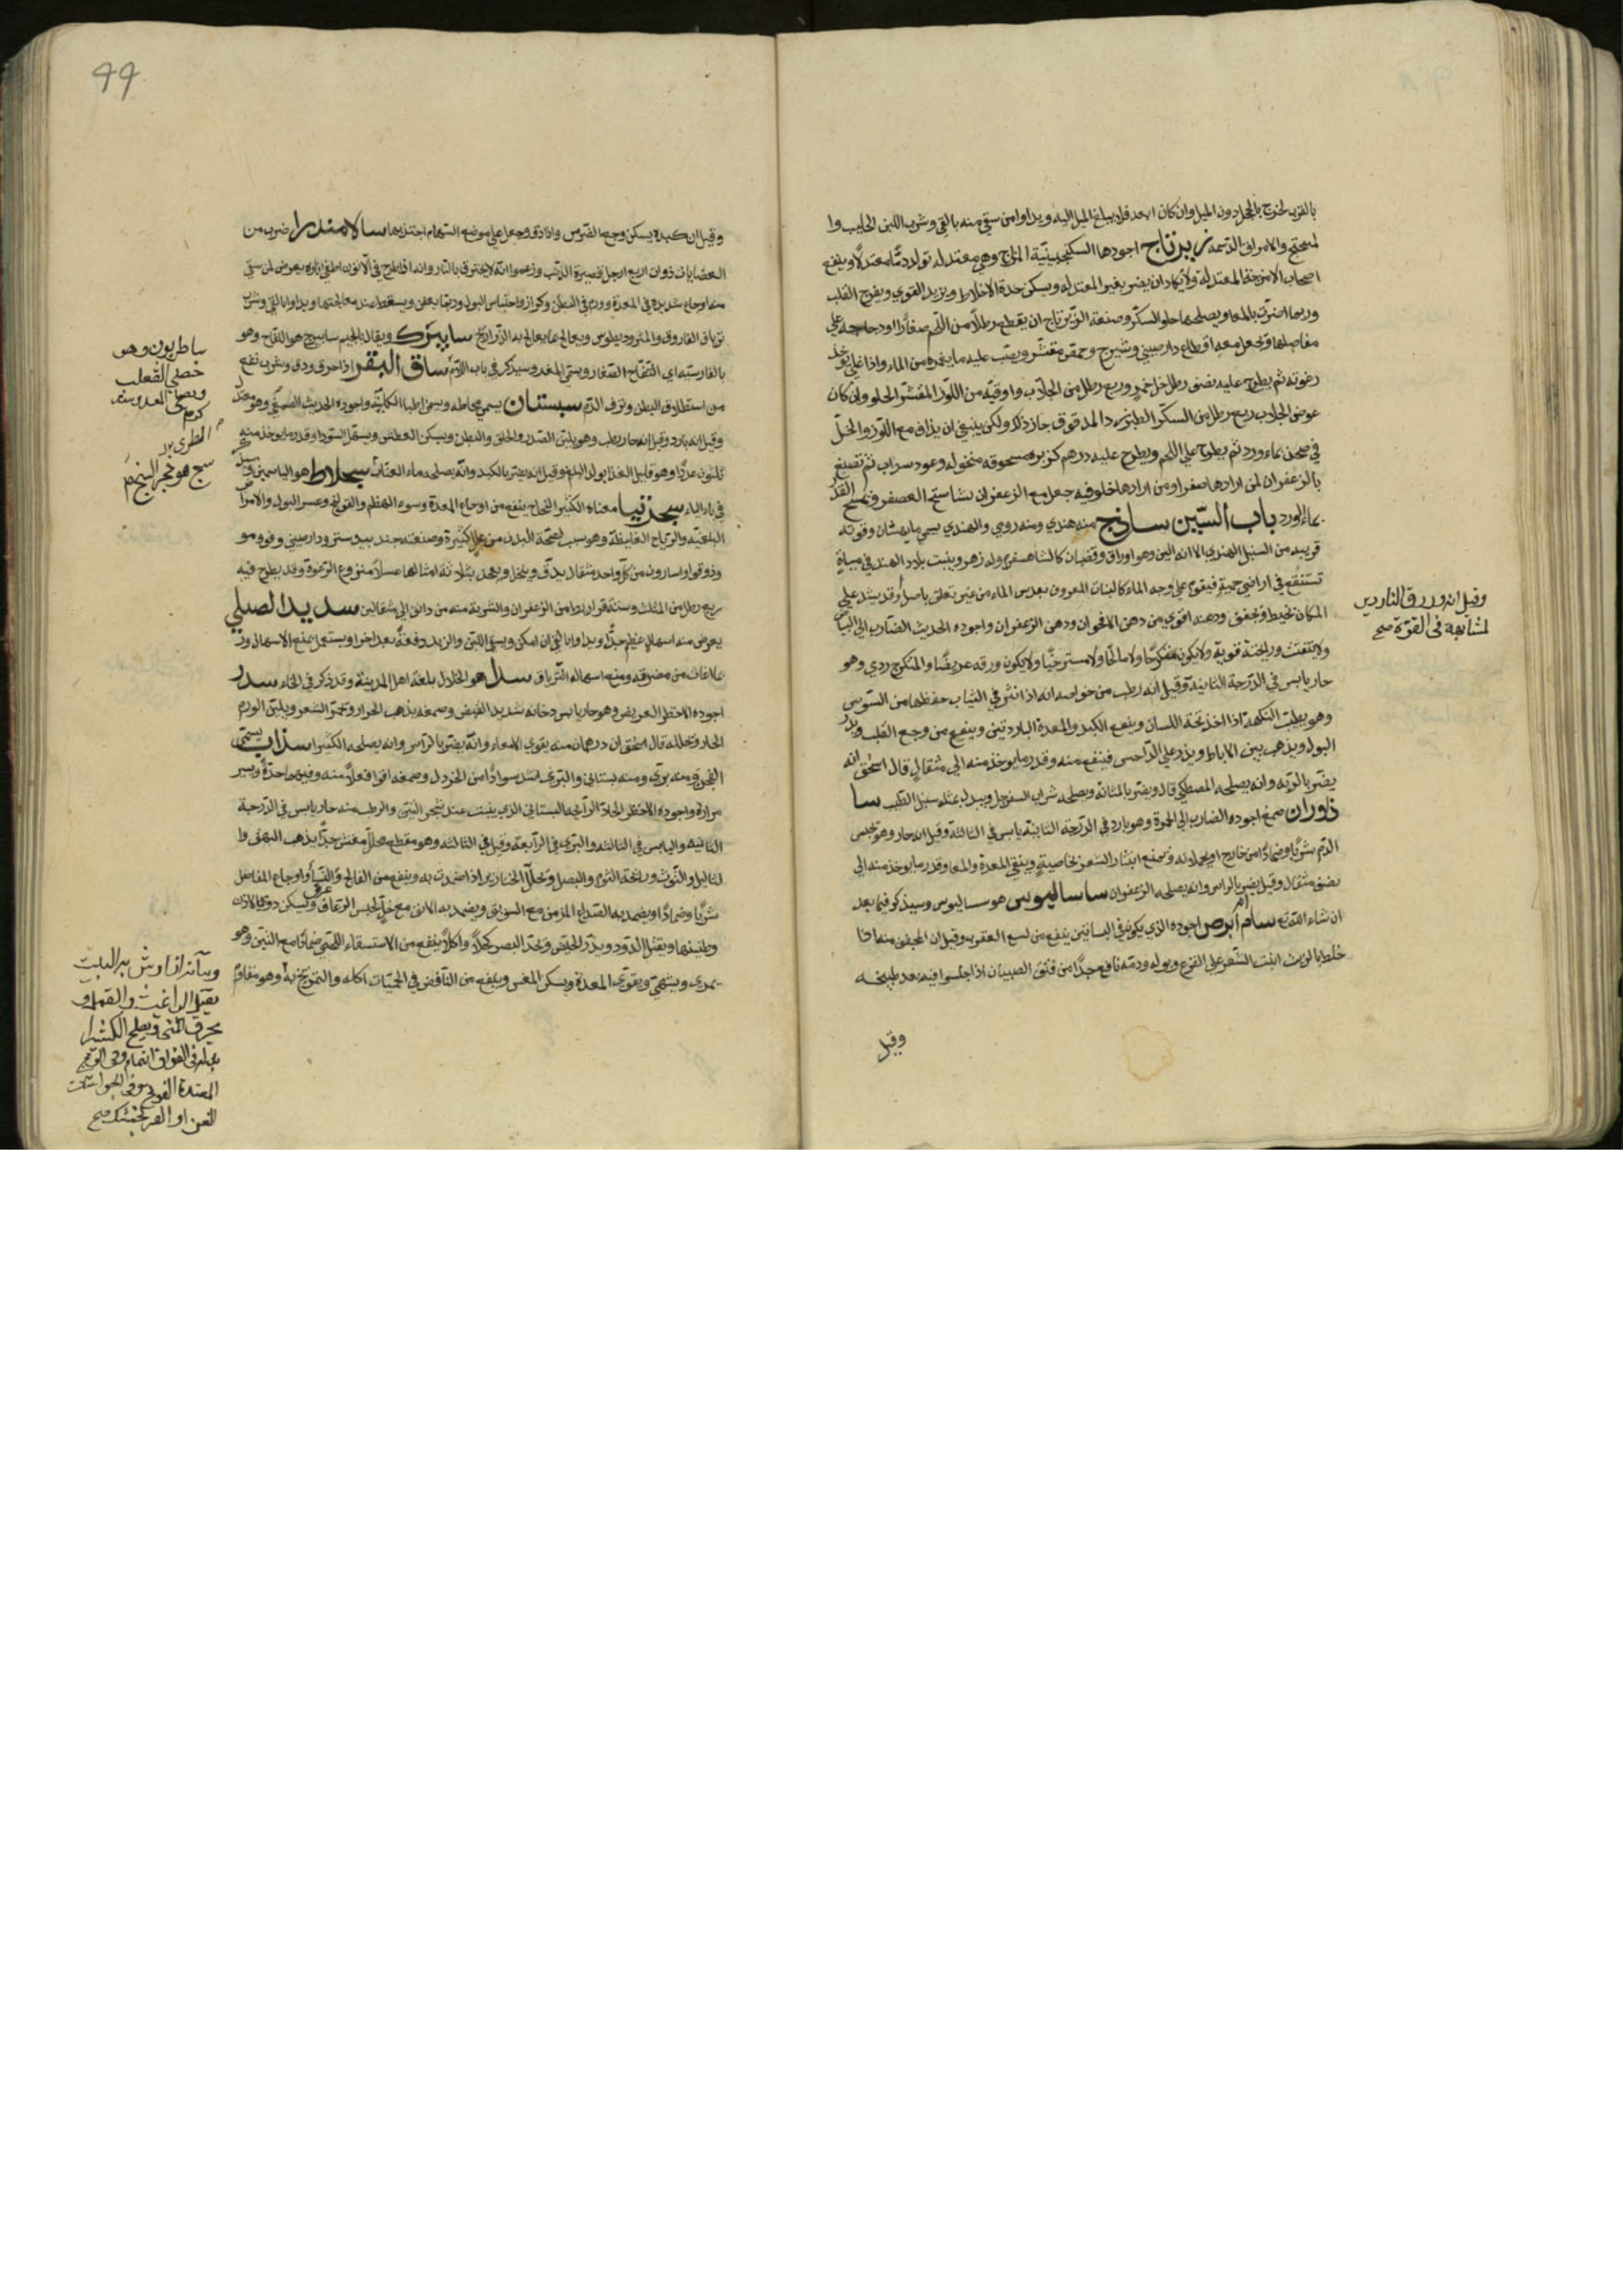 بالقرب لخرج بالجلاد دون الميل وان كان ابعد فلا يبلغ الميل اليه ويداوا من سقي منه بالقي وشرب اللبن الحليب وا
والامراق الدسمة زيرباج اجودها السكنجبينية المزاج وهي معتدلة تولد دما معتدلا وينفع
اصحاب الامزجة المعتدلة ولا يكاد ان يضر بغير المعتدلة ويسكن حدة الاخلاط ويزيد القوي ويفرح القلب
وربما اضرت بالمعا ويصلحها حلو السكر وصنعة الزيرباج ان يقطع رطلا من اللحم صغارا او دجاجة على
مفاصلها وتجعل معه اقطاع دارصيني وشيرج وحمص مقشر ويصب عليه ما يغمره من الماء واذا غلي تؤخذ
رغوته ثم يطرح عليه نصف رطل خل خمر وربع رطل من الجلاب واوقية من اللوز المقشر الحلو وان كان
عوض الجلاب ربع رطل من السكر الطبرزد المدقوق جاز ذلك ولكن ينبغي ان يذاف مع اللوز والخل
في صحن بماء ورد ثم يطرح علي اللحم ويطرح عليه درهم كزبرة مسحوقة منخوله وعود سداب ثم تصبغ
بالزعفران لمن ارادها صفرا ومن ارادها خلوقيه جعل مع الزعفران نشاستج العصفر وتمسح القدر
بماء الورد باب السين ساذج منه هندي ومنه رومي والهندي يسمي وقوته
قريبه من السنبل الهندي الا انه الين وهو اوراق وقضبان كالشاهسفرم وله زهر وينبت ببلاد الهند في مياه
تستنقع في اراضي حمية فيقوم علي وجه الماء كالنبات المعروف بعدس الماء من غير تعلق باصل وقد يشد علي
المكان بخيط وتجفف ودهنه اقوي من دهن الاقحوان ودهن الزعفران واجوده الحديث الضارب الي البياض
ولا يتفتت ورايحته قوية ولا يكون متكرجا ولا مالحا ولا مسترخيا ولا يكون ورقه عريضا والمتكرج ردي وهو
حار يابس في الدرجة الثانية وقيل انه رطب من خواصه انه اذا انثر في الثياب حفظها من السوس
وهو يطيب النكهة اذا اخذ تحت اللسان وينفع الكبد والمعدة الباردتين وينفع من وجع القلب ويدر
البول ويذهب بنتن الاباط ويذر علي الداحس فينفع منه وقدر ما يوخذ منه الي مثقال قال اسحق انه
يضر بالرية وانه يصلحه المصطكي قال ويضر بالمثانة ويصلحه شراب السفرجل وبدله مثله سنبل الطيب سا
ذوران صمغ اجوده الضارب الي الحمرة وهو بارد في الدرجة الثانية يابس في الثالثة وقيل انه حار وهو يحبس
الدم شربا وضمادا من خارج او وتمنع انتثار الشعر بخاصيته وينقي المعدة والمعا وقدر ما يوخذ منه الي
نصف مثقال وقيل يضر بالراس وانه يصلحه الزعفران ساساليوس هو سساليوس وسيذكر فيما بعد
ان شاء الله تع سام ابرص اجوده الذي يكون في البساتين ينفع من لسع العقرب وقيل ان المجفف منه اذا
خلط بالزيت انبت الشعر علي القرع وبوله ودمه نافع جدا من فتق الصبيان اذا جلسوا فيه بعد طبيخه
وقيل
وقيل انه ورق الناردين
لمشابهة في القوة صح
99
وقيل ان كبده يسكن وجع الضرس واذا دق وجعل علي موضع السهام اجتذبها سالامندرا ضرب من
العضايات ذوات اربع ارجل قصيرة الذنب وزعموا انه لا يحترق بالنار وانه اذا طرح في الاتون اطفي ناره يعرض لمن سقي
منها وجاع شديده في المعدة وورم في البطن وكزاز واحتباس البول وربما ويسقط عند معالجتها ويداوا بالقي وشرب
ترياق الفاروق والمثروديطوس ويعالج بما يعالج به الذراريح سابيزك ويقال بالجيم سابيزج هو اللفاح وهو
بالفارسية اي التفاح الصغار ويسمي المغد وسيذكر في باب اللام ساق البقر اذا حرق ودق وشرب نفع
من استطلاق البطن ونزف الدم سبستان يسمي مخاطه ويسمي اطبا الكلبة واجوده الحديث الصمغي وهو معتدل
وقيل انه بارد وقيل انه حار رطب وهو يلين الصدر والحلق والبطن ويسكن العطش ويسهل السودا وقدر ما يوخذ منه
ثلثون عددا وهو قليل الغذا يولد البلغم وقيل انه يضر بالكبد وانه يصلحه ماء العناب سجلاط هو الياسمين
في باب الياء سجزنيا معناه الكثير النجاح ينفع من اوجاع المعدة وسوء الهظم والقولنج وعسر البول والامراض
البلغمية والرياح الغليظة وهو سبب لصحة البدن من علل كثيرة وصنعته جندبيدستر ودارصيني وفو ومو
ودوقوا واسارون من كل واحد مثقال يدق وينخل ويعجن بثلاثة امثالها عسلا منزوع الرغوة وقد يطرح فيه
ربع رطل من المثلث وستة قراريط من الزعفران والشربة منه من دانق الي مثقالين سديد الصلي
يعرض منه اسهال عظيم جدا ويداوا بالقي ان امكن ويسقي اللبن والزبد دفعة بعد اخرا ويستعمل بمنع الاسهال ورد
مضرته ومنع اسهاله الترياق سدل هو الخلال بلغة اهل المدينة وقد ذكر في الخاء سدر
اجوده الاخظر العريض وهو حار يابس دخانه شديد القبض وصمغه يذهب الحزاز ويحمر الشعر ويلين الورم
الحار وتحلله قال اسحق ان درهمان منه يقوي الامعاء وانه يضر بالراس وانه يصلحه الكثيرا سذاب يسمي
الفيجن ومنه بري ومنه بستاني والبري اشد سوادا من الخردل وصمغه اقوا فعلا منه وفيهما حدة ويسير
مرارة واجوده الاخظر الحاد الرايحه البستاني الذي ينبت عند شجر التين والرطب منه حار يابس في الدرجة
الثانية واليابس في الثالثة والبري في الرابعة وقيل في الثالثة وهو مقطع محلل جدا يذهب البهق وا
لثاليل والتوث ورايحة الثوم والبصل ويحلل الخنازير اذا ضمدت به وينفع من الفالج والنسا واوجاع المفاصل
شربا وضمادا ويضمد به الصداع المزمن مع السويق ويضمد به الانف مع خل لحبس الرعاف ويسكن دوي الاذن
وطنينها ويقتل الدود ويدر الحيض ويحد البصر كحلا واكلا وينفع من الاستسقاء اللحمي ضمادا مع التين وهو
يمري ويشهي ويقوي المعدة ويسكن المغس وينفع من النافض في الحميات اكله والتمريخ به وهو مقاوم
ساطريون وهو
خصي الثعلب
الطري
سبج هو حجر
اذا رش به البيت
يقتل البراغيث والقمل و
يحرق المني ويصلح الكثيرا
صح